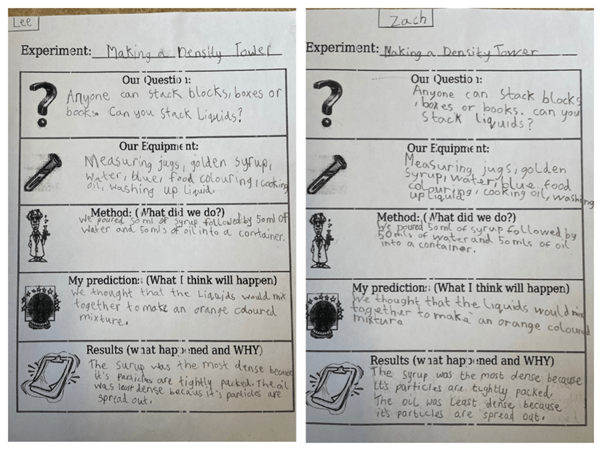 Lee
Experiment: Making a Density Tower
Our Question:
Anyone can stack blocks, boxes or
books. Can you stack Liquids?
Our Equipment:
Measuring jugs, golden syrup,
water, blue, food colouring, cooking
oil, washing up liquid.
Method: (What did we do?)
We poured 50ml of syrup followed by 50ml of
water and 50mls of oil into a container.
My prediction: (What I think will happen)
We thought that the liquids would mix
together to make an orange coloured
mixture.
Results (what happened and WHY)
The syrup was the most dense because
it's particles are tightly packed. The oil
was least dense becaus it's particles are
spread out.
Zach
Experiment: Making a Density Tower
Our Question:
Anyone can stack blocks
, boxes or books. can you
stack liquids?
Our Equipment:
Measuring jugs, golden
syrup, water, blue food
colouring, cooking oil, washing
up liquid
Method: (What did we do?)
We poured 50ml of syrup followed by
50mls of water and 50mls of oil
into a container.
My prediction: (What I think will happen)
We thought that the liquids would mix
together to make an orange coloured
mixture
Results (what happened and WHY)
The syrup was the most dense because
it's particles are tightly packed.
The oil was least dense because
it's particles are spread out.